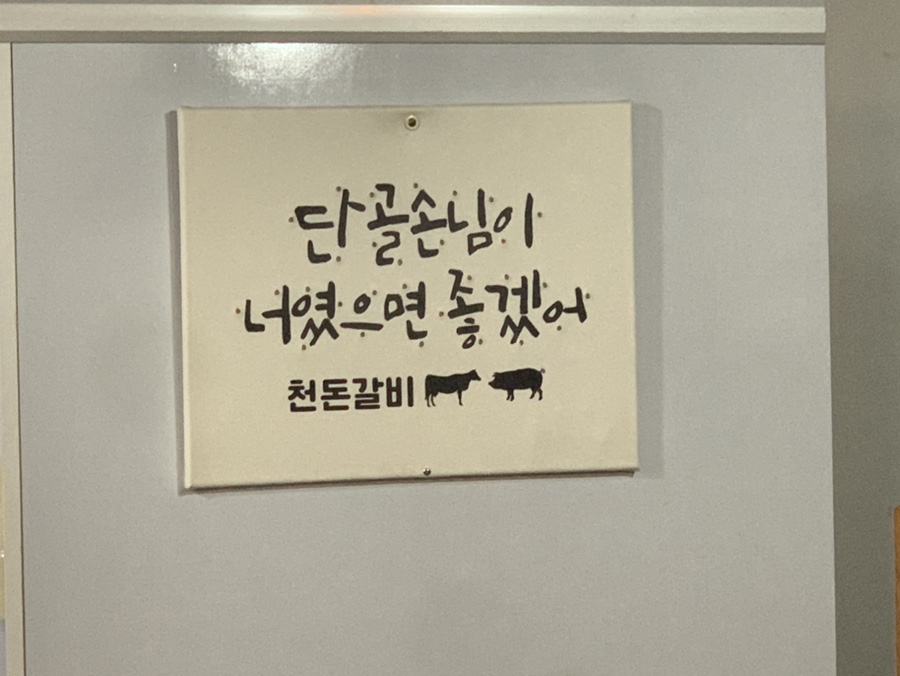 단골손님이
너였으면 좋겠어
천돈갈비